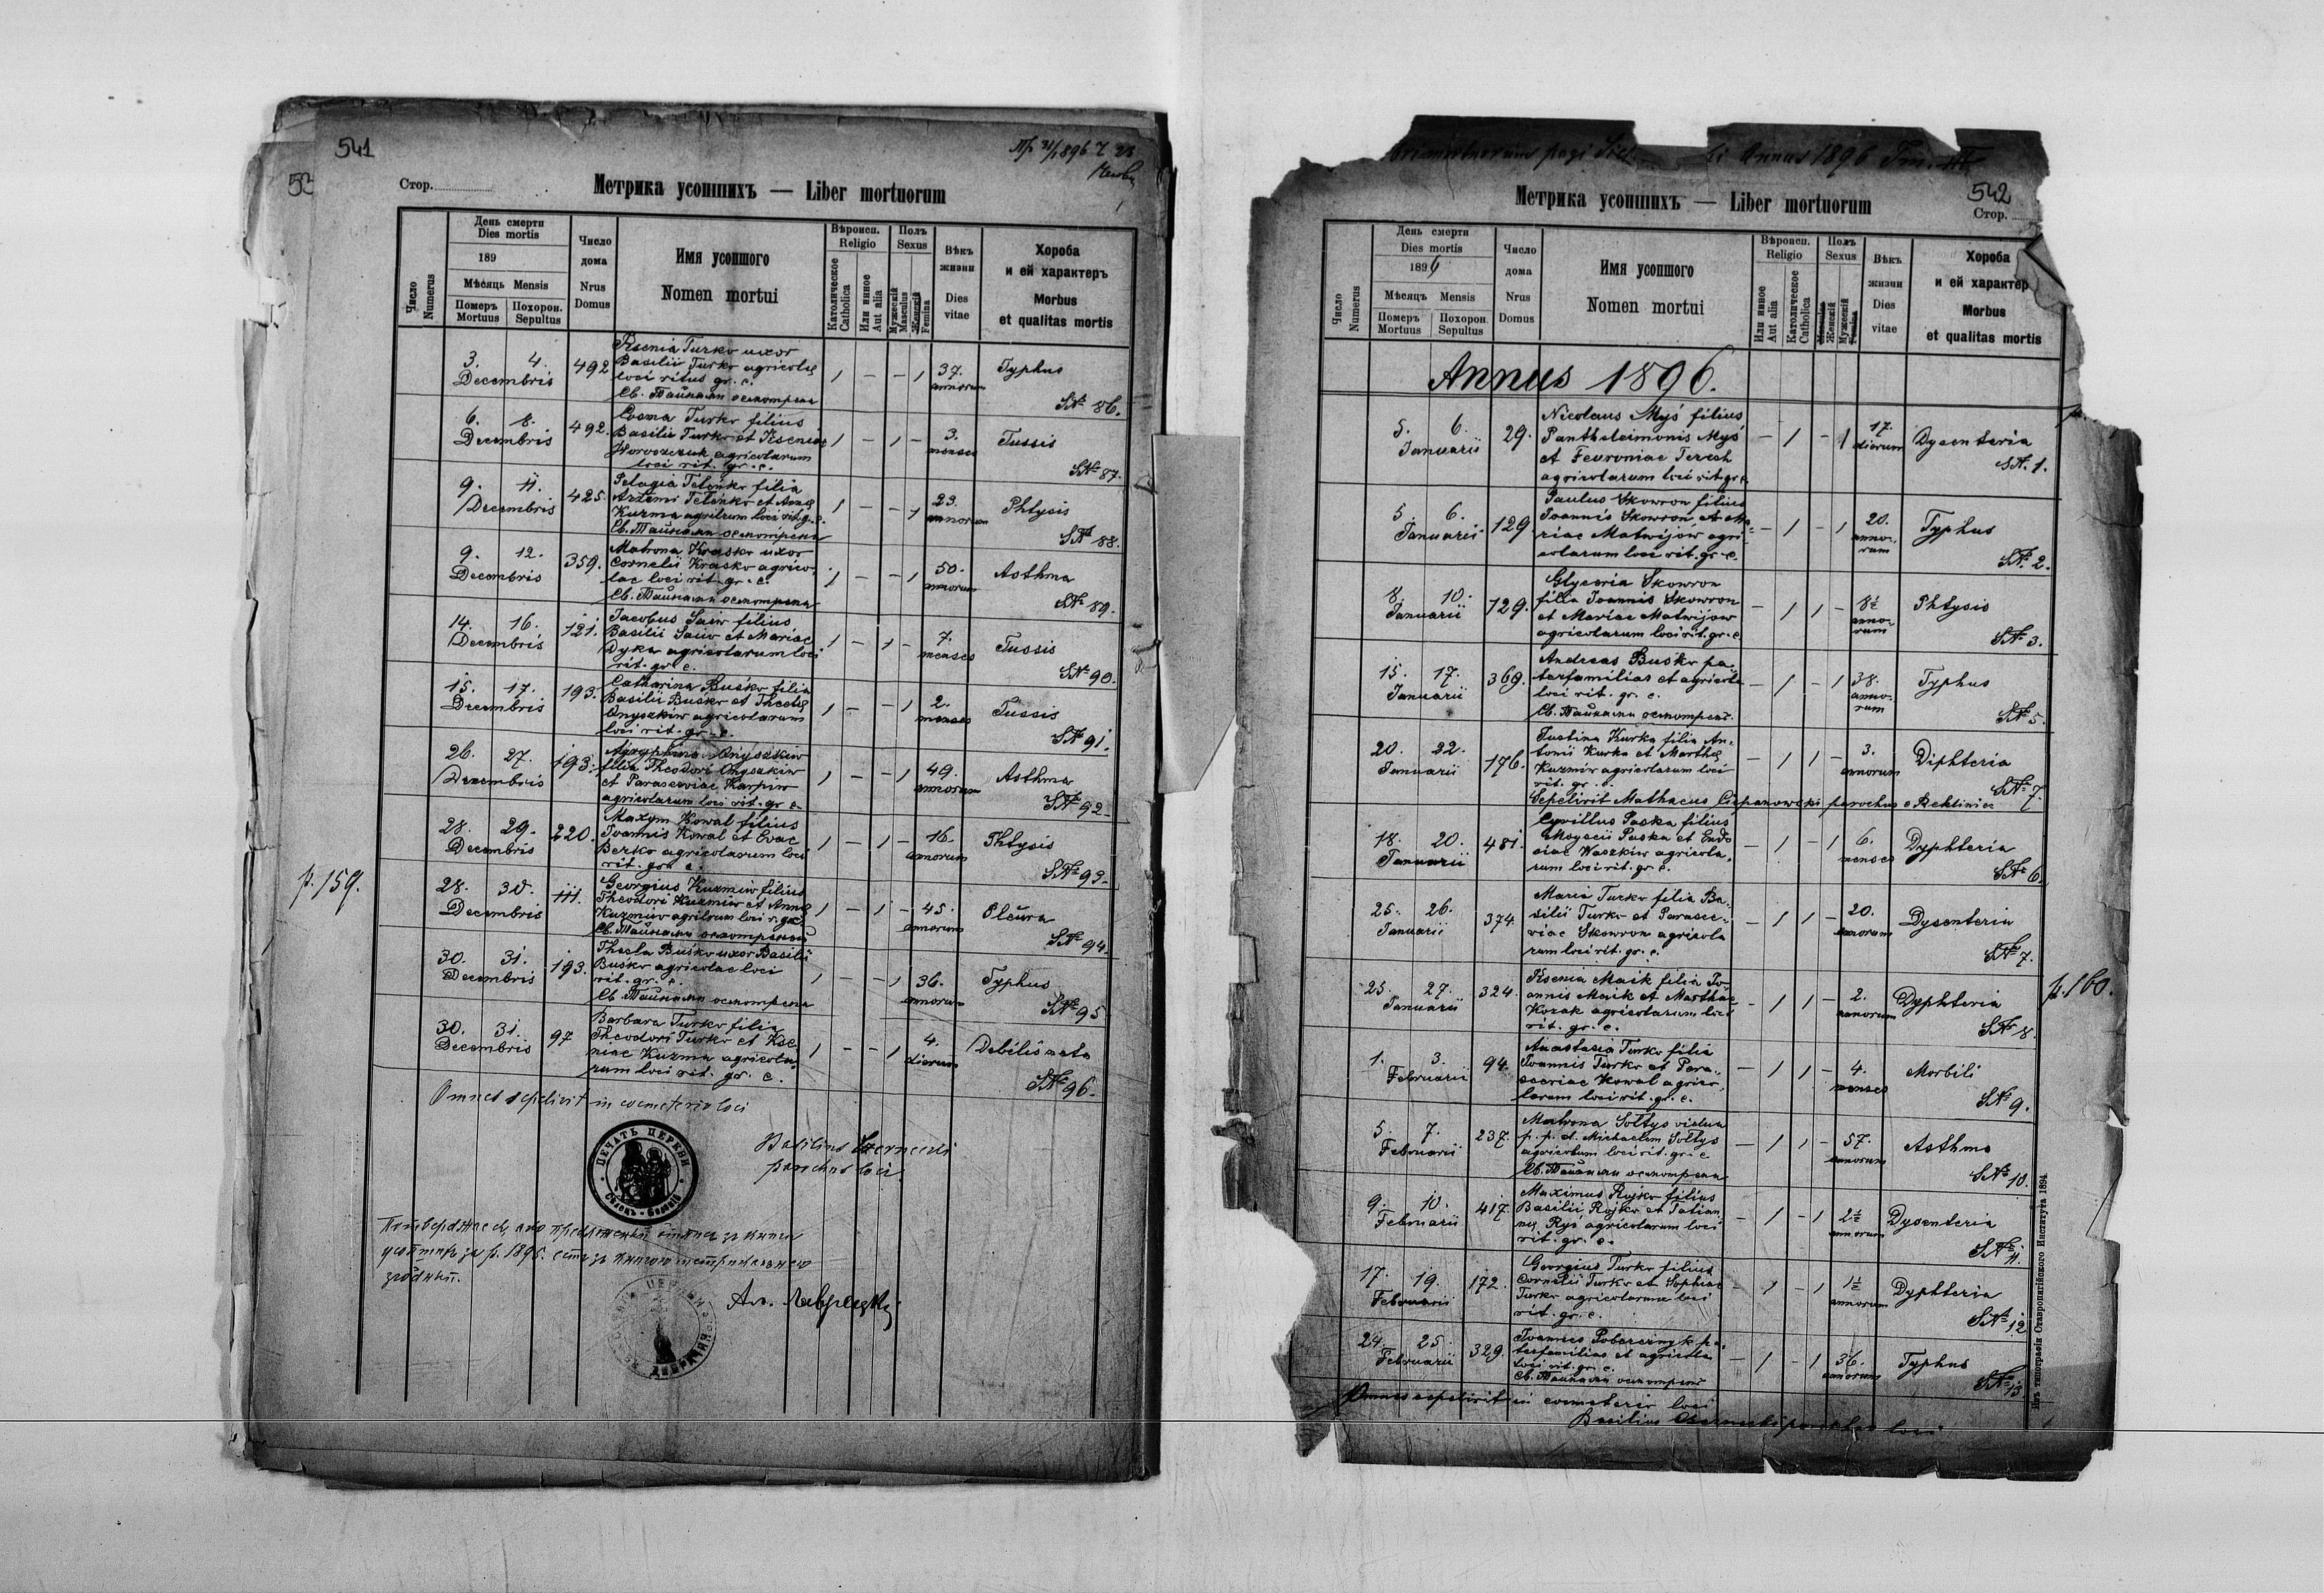 541
53
Стор.
Метрика усопшихъ — Liber mortuorum
Число
Numerus
День смерти
Dies mortis
189
Мѣсяць Mensis
Померъ
Mortuus
Похорон.
Sepultus
Число
дома
Nrus
Domus
Имя усопшого
Nomen mortui
Вѣроисп.
Religio
Католическое
Catholica
Или инное
Aut alia
Полъ
Sexus
Мужескій
Masculus
Женскій
Femina
Вѣкъ
жизни
Dies
vitae
Хороба
и ей характеръ
Morbus
et qualitas mortis
3. 4.
Decembris
492
Ksenia Turko uxor
Basilii Turko agricolae
loci ritus gr. c.
Св. Тайнами осмотрена
1 – – 1
37.
annorum
Typhus
SN 86.
6. 8.
Decembris
492.
Cosma Turko filius
Basilii Turko et Kseniae
Woroszczuk agricolarum
loci rit. gr. c.
1 – 1 –
3.
menses
Tussis
SN 87.
9. 11.
Decembris
425.
Pelagia Telenko filia
Artemi Telenko et Annae
Kuzma agrilrum loci rit. g. c.
Св. Тайнами осмотрена
1 – – 1
23.
annorum
Phtysis
SN 88.
9. 12.
Decembris
359.
Matrona Krasko uxor
Cornelii Krasko agrico-
lae loci rit. gr. c.
Св. Тайнами осмотрена
1 – – 1
50.
annorum
Asthma
SN 89.
14. 16.
Decembris
121.
Jacobus Saiw filius
Basilii Saiw et Mariae
Dyka agricolarum loci
rit. gr. c.
1 – 1 –
7.
menses
Tussis
SN 90.
15. 17.
Decembris
193.
Catharina Buśko filia
Basilii Buśko et Theclae
Onyszkiw agricolarum
loci rit. gr. c.
1 – – 1
2.
menses
Tussis
SN 91.
26. 27.
Decembris
193.
Agryphina Onyszkiw
filia Theodori Onyszkiw
et Parasceviae Karpiw
agricolarum loci rit. gr c.
1 – – 1
49.
annorum
Asthma
SN 92.
28. 29.
Decembris
220.
Maxym Kowal filius
Joannis Kowal et Evae
Berko agricolarum loci
rit. gr. c.
1 – 1 –
16.
annorum
Phtysis
SN 93.
p. 159.
28. 30.
Decembris
111.
Georgius Kuzmiw filius
Theodori Kuzmiw et Annae
Kuzmiw agrilrum loci r. gr. c
Св. Тайнами осмотреный
1 – 1 –
45.
annorum
Pleura
SN 94.
30. 31.
Decembris
193.
Thecla Buśko uxor Basilii
Busko agricolae loci
rit. gr. c.
Св. Тайнами осмотрена
1 – – 1
36.
annorum
Typhus
SN 95
30. 31.
Decembris
97
Barbara Turko filia
Theodori Turko et Kse-
niae Kuzma agricola-
rum loci rit. gr. c.
1 – – 1
4.
dierum
Debilis nata
SN 96.
Omnes sepelivit in coemeterio loci
Basilius Czernecki
parochus loci.
ПЕЧАТЬ ЦЕРКВИ
Сѣлець - Бенькій
542
Annus 1896
Метрика усопшихъ — Liber mortuorum
Стор.
Число
Numerus
День смерти
Dies mortis
1896
Мѣсяць Mensis
Померъ
Mortuus
Похорон.
Sepultus
Число
дома
Nrus
Domus
Имя усопшого
Nomen mortui
Вѣроисп.
Religio
Или инное
Aut alia
Католическое
Catholica
Полъ
Sexus
Женскій
Мужескій
Вѣкъ
жизни
Dies
vitae
Хороба
и ей характер
Morbus
et qualitas mortis
Annus 1896.
5. 6.
Januarii
29.
Nicolaus Myś filius
Pantheleimonis Myś
et Fevroniae Terech
agricolarum loci rit. gr. c.
– 1 – 1
17.
dierum
Dysenteria
SN. 1.
5. 6.
Januarii
129.
Paulus Skowron filius
Joannis Skowron et Ma-
riae Matwijow agri-
colarum loci rit. gr. c.
– 1 – 1
20.
anno-
rum
Typhus
SN. 2.
8. 10.
Januarii
129.
Glyceria Skowron
filia Joannis Skowron
et Mariae Matwijow
agricolarum loci rit. gr. c.
– 1 1 –
8½
anno-
rum
Phtysis
SN 3.
15. 17.
Januarii
369.
Andreas Buśko pa-
terfamilias et agricola
loci rit. gr. c.
Св. Тайнами осмотрен.
– 1 – 1
38.
anno-
rum
Typhus
SN 5.
20. 22.
Januarii
176.
Justina Kurka filia An-
tonii Kurka et Marthae
Kuzmiw agricolarum loci
rit. gr. c.
– 1 1 –
3.
annorum
Diphteria
SN 7.
Sepelivit Mathaeus Czepanowski parochus
18. 20.
Januarii
481.
Cyrillus Paska filius
Moyseii Paska et Eudo-
ciae Waszkiw agricola-
rum loci rit. gr. c.
– 1 – 1
6.
menses
Dyphteria
SN 6.
25. 26.
Januarii
374.
Maria Turko filia Ba-
silii Turko et Parasce-
viae Skowron agricola
rum loci rit. gr. c.
– 1 1 –
20.
annorum
Dysenteria
SN 7.
25. 27.
Januarii
324.
Ksenia Maik filia Jo-
annis Maik et Marthae
Kozak agricolarum loci
rit. gr. c.
– 1 1 –
2.
annorum
Dyphteria
SN 8.
p. 160.
1. 3.
Februarii
94.
Anastasia Turko filia
Joannis Turko et Para-
sceviae Kowal agrico-
larum loci rit. gr. c.
– 1 1 –
4.
menses
Morbili
SN 9.
5. 7.
Februarii
237.
Matrona Sołtys vidua
p. p. d. Michaelem Sołtys
agricolam loci rit. gr. c
Св. Тайнами осмотрена
– 1 1 –
57.
annorum
Asthma
SN 10.
9. 10.
Februarii
417.
Maximus Rojko filius
Basilii Rojko et Tatian-
nae Ryś agricolarum loci
rit. gr. c.
– 1 – 1
2½
annorum
Dysenteria
SN 11.
17. 19.
Februarii
172.
Georgius Turko filius
Cornelii Turko et Sophiae
Turko agricolarum loci
rit. gr. c.
– 1 – 1
1½
annorum
Dyphteria
SN 12
24. 25
Februarii
329.
Joannes Pobereznyk pa-
terfamilias et agricola
loci rit. gr. c.
Св. Тайнами осмотренъ
– 1 – 1
36.
annorum
Typhus
SN 13.
Omnes sepelivit in coemeterio loci
Basilius Czernecki parochus loci
Изъ типографіи Ставропигійского Института 1894